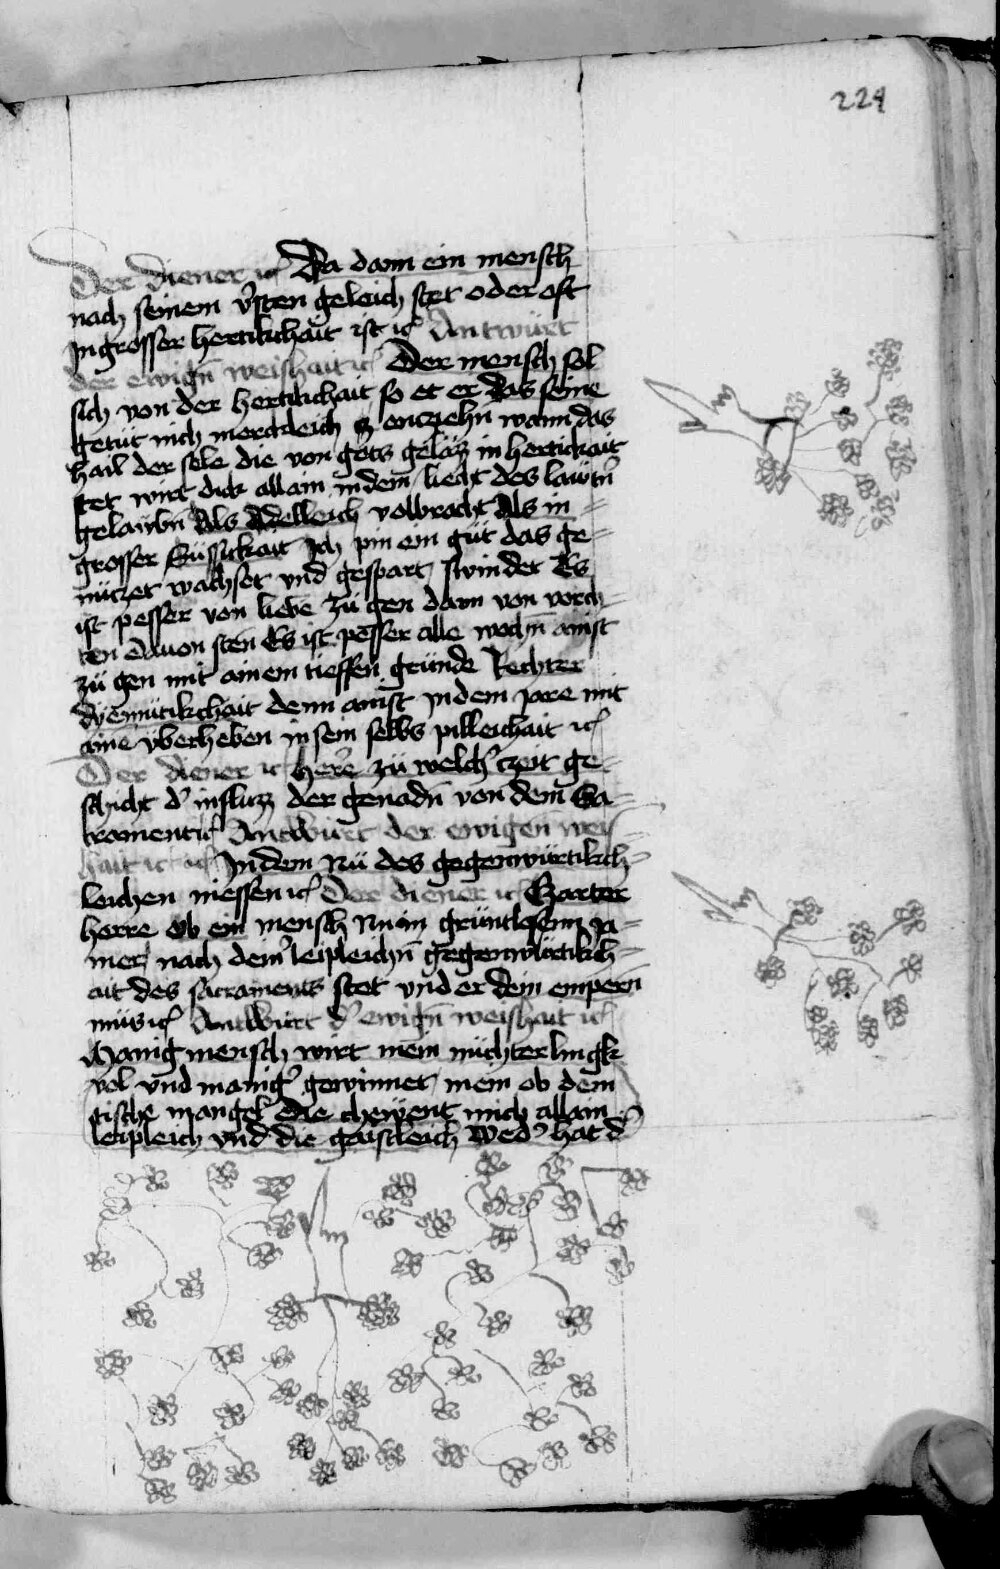 224
Der diener ⁊c̃ Da dann ein mensch
nach seinem v̓sten geleich stet oder oft
In grosser hertikchait ist ⁊c̃ Antwurt
der ewign̄ weishait ⁊c̃ Der mensch sol
sich von der hertikchait so et er das seine
getüt nich merckleich enczehn wann das
hail der sele die von gots geläz in hertickait
stet wirt dick allain in dem liecht des lawtn̓
gelawbn̄ Als Adelleich volbracht Als in
grosser Süssickait Ich pin ein güt das ge-
nüczet wachset vnd gespart swindet Es
ist pesser von liebe zü gen dann von vorch-
ten dauon sten Es ist pesser alle wochn̄ ainst
zü gen mit ainem tieffen gründe Rechter
dyemütikchait denn ainst In dem jare mit
aine vberheben in sein selbs pilleichait ⁊c̃
Der diener ⁊c̃ here zü welch̓ czeit ge-
schicht d̓ influz der genadn̄ von dem Sa-
krament ⁊c̃ Antwurt der ewigen weis-
hait ⁊c̃ In dem Nü des gegenwürtikch-
leichen niessen ⁊c̃ Der diener ⁊c̃ Czarter
herre ob ein mensch Nu in grüntlosem Ja-
mer nach dein̓ leipleichn̄ gegenwürtikch-
ait des sacraments stet vnd er dein empern̄
müs ⁊c̃ Antwurt d̓ ewign̄ weishait ⁊c̃
Manig mensch wirt mein nüchterlingk
vol vnd manig̓ gewinnet mein ob dem
tische mangel Die chewent mich allain
leipleich vnd die geistleich Wed̓ hat d̓